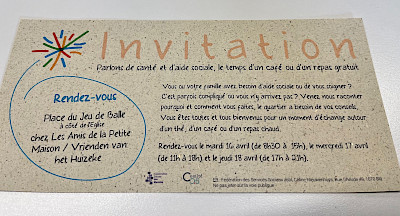 Invitation
Parlons de santé et d'aide sociale, le temps d'un café ou d'un repas gratuit
Rendez-vous
Place du Jeu de Balle
à côté de l'Eglise
chez Les Amis de la Petite
Maison / Vrienden van
het Huizeke
Vous ou votre famille avez besoin d'aide sociale ou de vous soigner ?
C'est parfois compliqué ou vous n'y arrivez pas ? Venez nous raconter
pourquoi et comment vous faites, le quartier a besoin de vos conseils.
Vous êtes toutes et tous bienvenus pour un moment d'échange autour
d'un thé, d'un café ou d'un repas chaud.
Rendez-vous le mardi 16 avril (de 8h30 à 15h), le mercredi 17 avril
(de 11h à 18h) et le jeudi 18 avril (de 17h à 21h).
Fédération des Services Sociaux asbl,
Ne pas jeter sur la voie publique